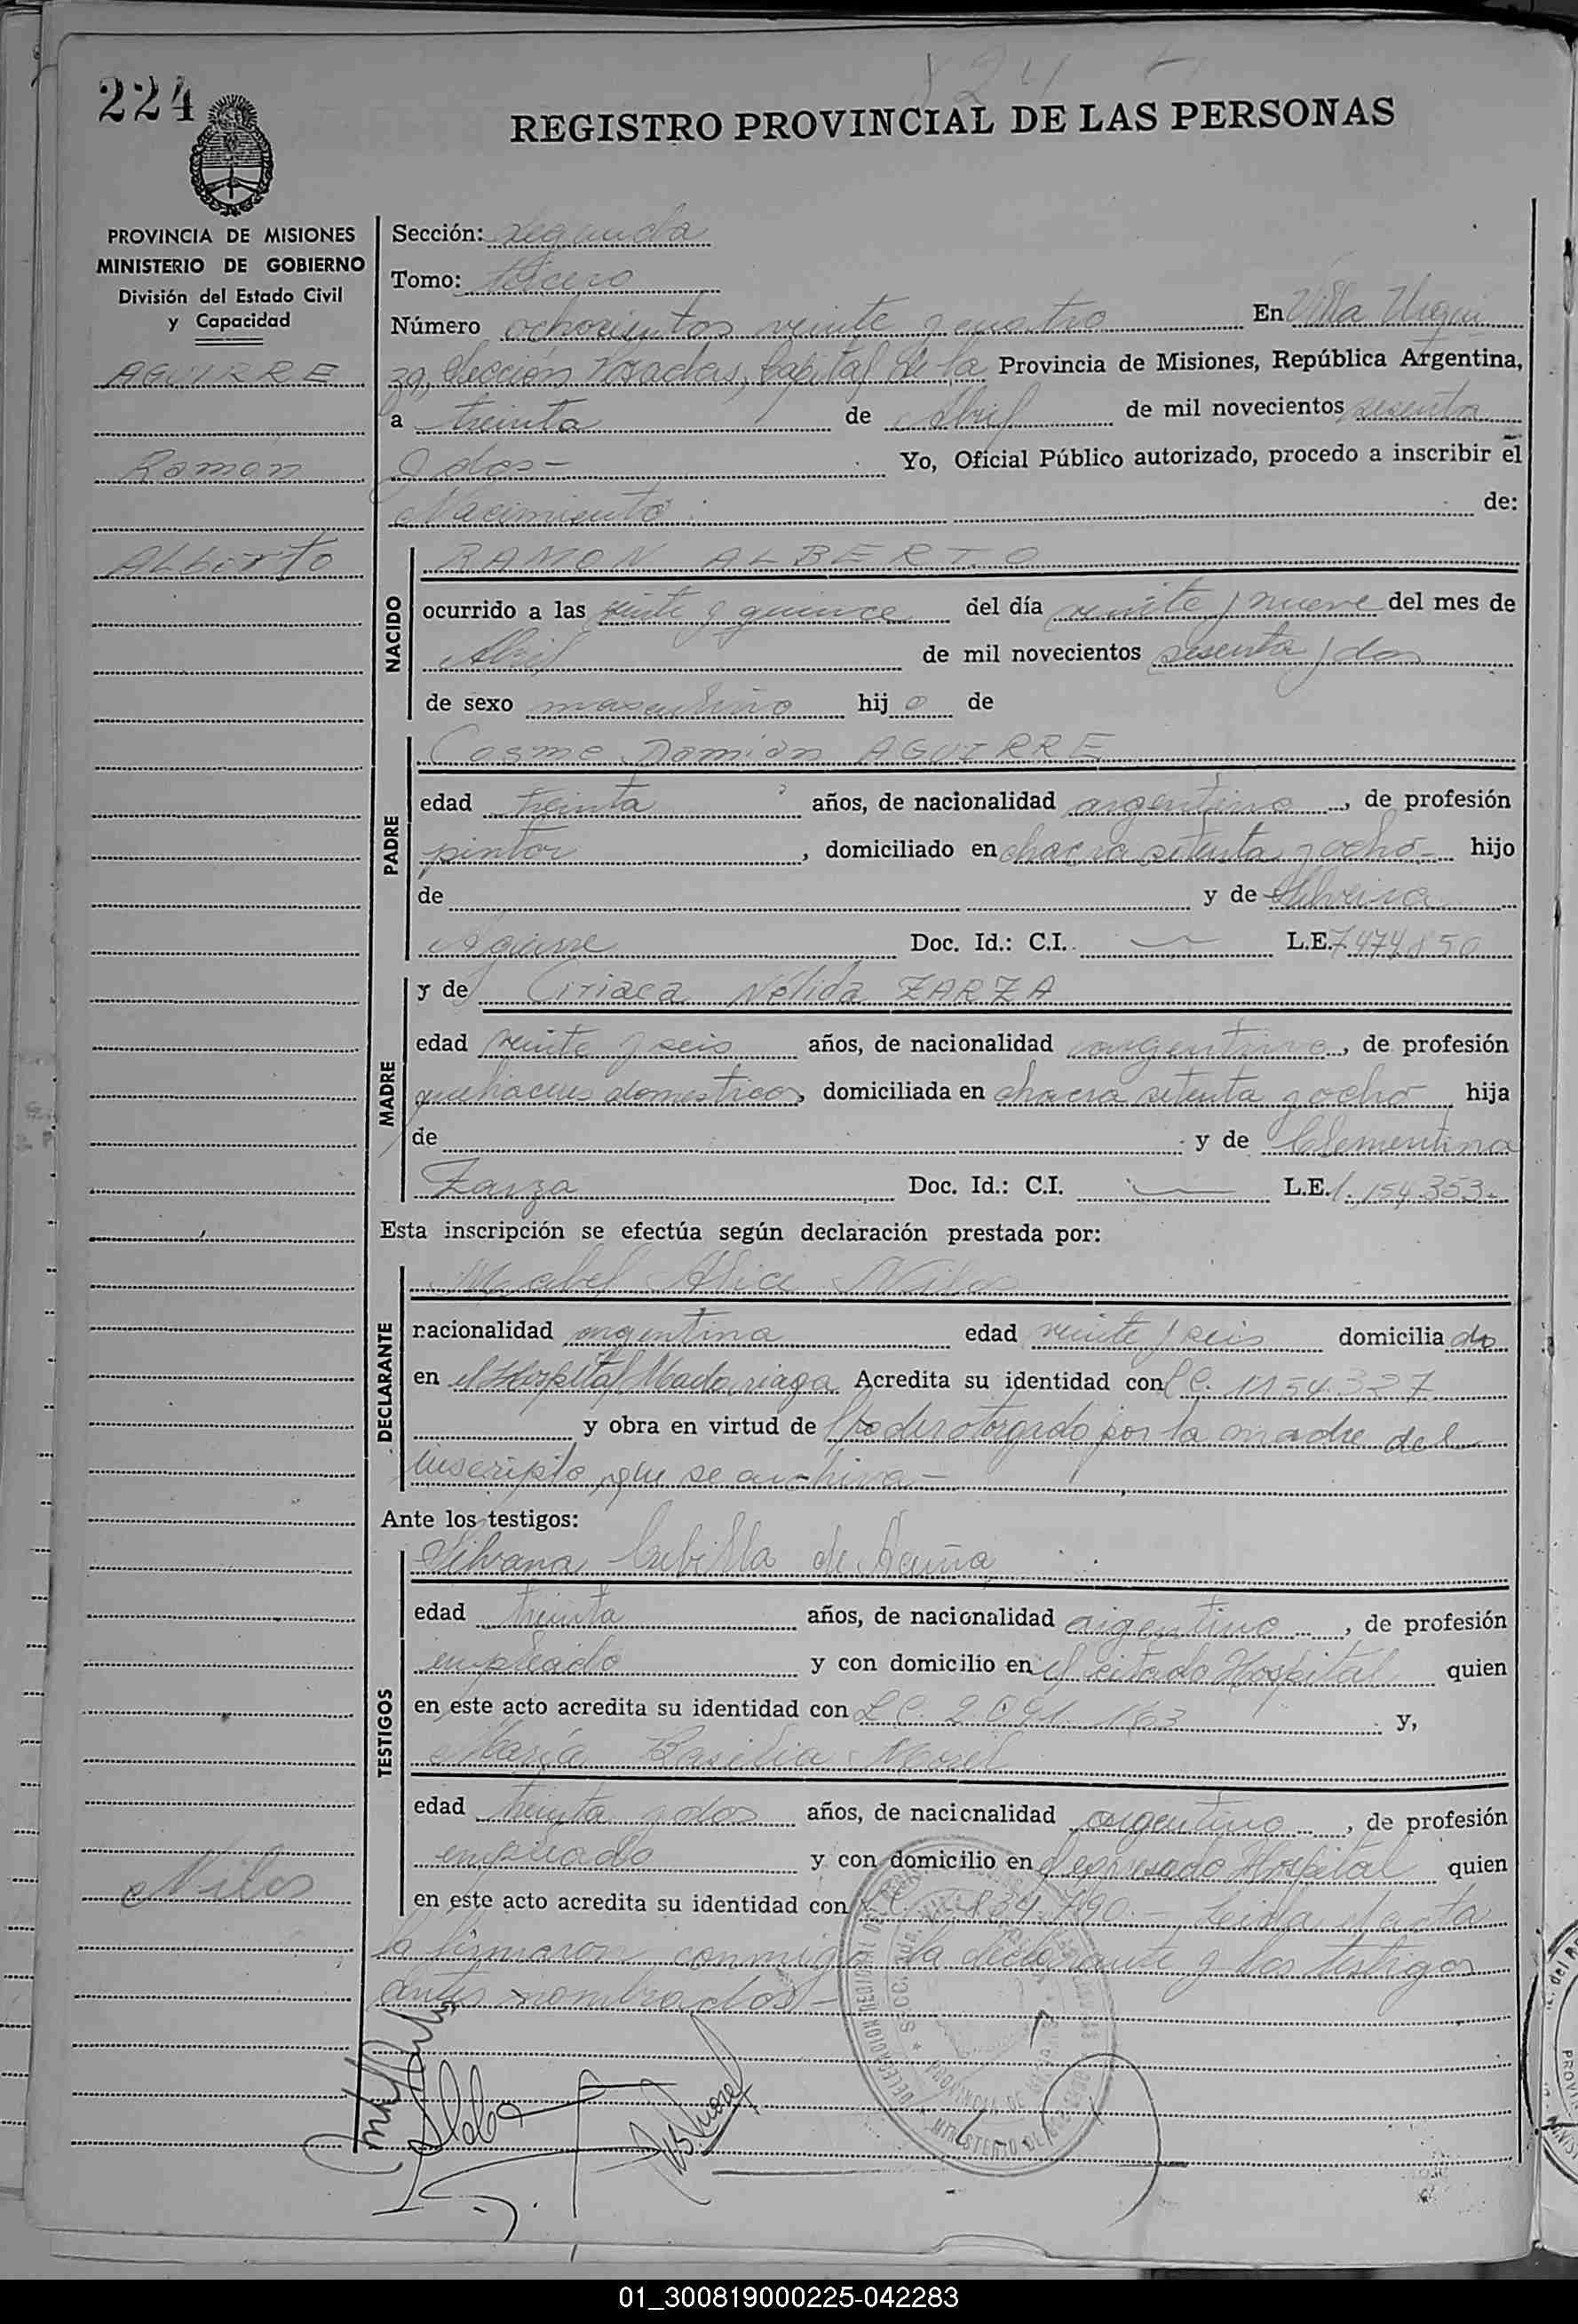 224
824
REGISTRO PROVINCIAL DE LAS PERSONAS
PROVINCIA DE MISIONES
MINISTERIO DE GOBIERNO
División del Estado Civil
y Capacidad
AGUIRRE
Ramon
Alberto
Sección: segunda
Tomo: tercero
Número ochocientos veinte y cuatro En Villa Urqui
za, Sección Posadas, Capital de la Provincia de Misiones, República Argentina,
a treinta de Abril de mil novecientos sesenta
y dos- Yo, Oficial Público autorizado, procedo a inscribir el
Nacimiento de:
NACIDO
RAMON ALBERTO
ocurrido a las veinte y quince del día veinte y nueve del mes de
Abril de mil novecientos sesenta y dos
de sexo masculino hij o de
PADRE
Cosme Damian AGUIRRE
edad treinta años, de nacionalidad argentino, de profesión
pintor, domiciliado en chacra setenta y ocho- hijo
de y de Silveira
Aguirre Doc. Id.: C.I. L.E. 7.474.850
MADRE
y de Ciriaca Nélida ZARZA
edad veinte y seis años, de nacionalidad argentina, de profesión
quehaceres domesticos, domiciliada en chacra setenta y ocho hija
de y de Clementina
Zarza Doc. Id.: C.I. L.E. 1.154.353-
Esta inscripción se efectúa según declaración prestada por:
DECLARANTE
Mabel Alice Niles
racionalidad argentina edad veinte y seis domicilia da
en el Hospital Madariaga Acredita su identidad con L.C. 1154.327
y obra en virtud de poder otorgado por la madre del
inscripto, que se archiva-
Ante los testigos:
TESTIGOS
Silvana Cubilla de Acuña
edad treinta años, de nacionalidad argentina, de profesión
empleada y con domicilio en el citado Hospital quien
en este acto acredita su identidad con L.C. 2.091.163 y,
María Basilia Morel
edad treinta y dos años, de nacionalidad argentina, de profesión
empleada y con domicilio en el expresado Hospital quien
en este acto acredita su identidad con L.C. 834.790.- Leida el acta
la firmaron conmigo la declarante y los testigos
antes nombrados-
Niles
01_300819000225-042283